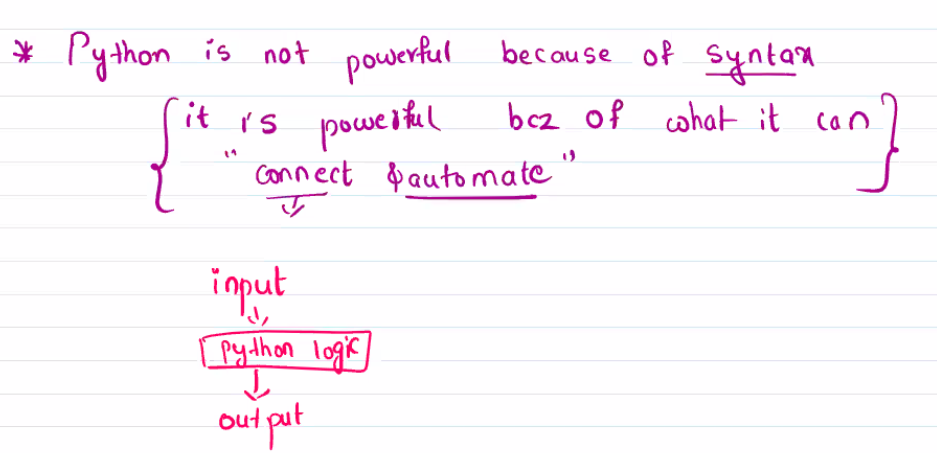 * Python is not powerful because of syntax
{it is powerful bcz of what it can}
"connect & automate"
input
python logic
output